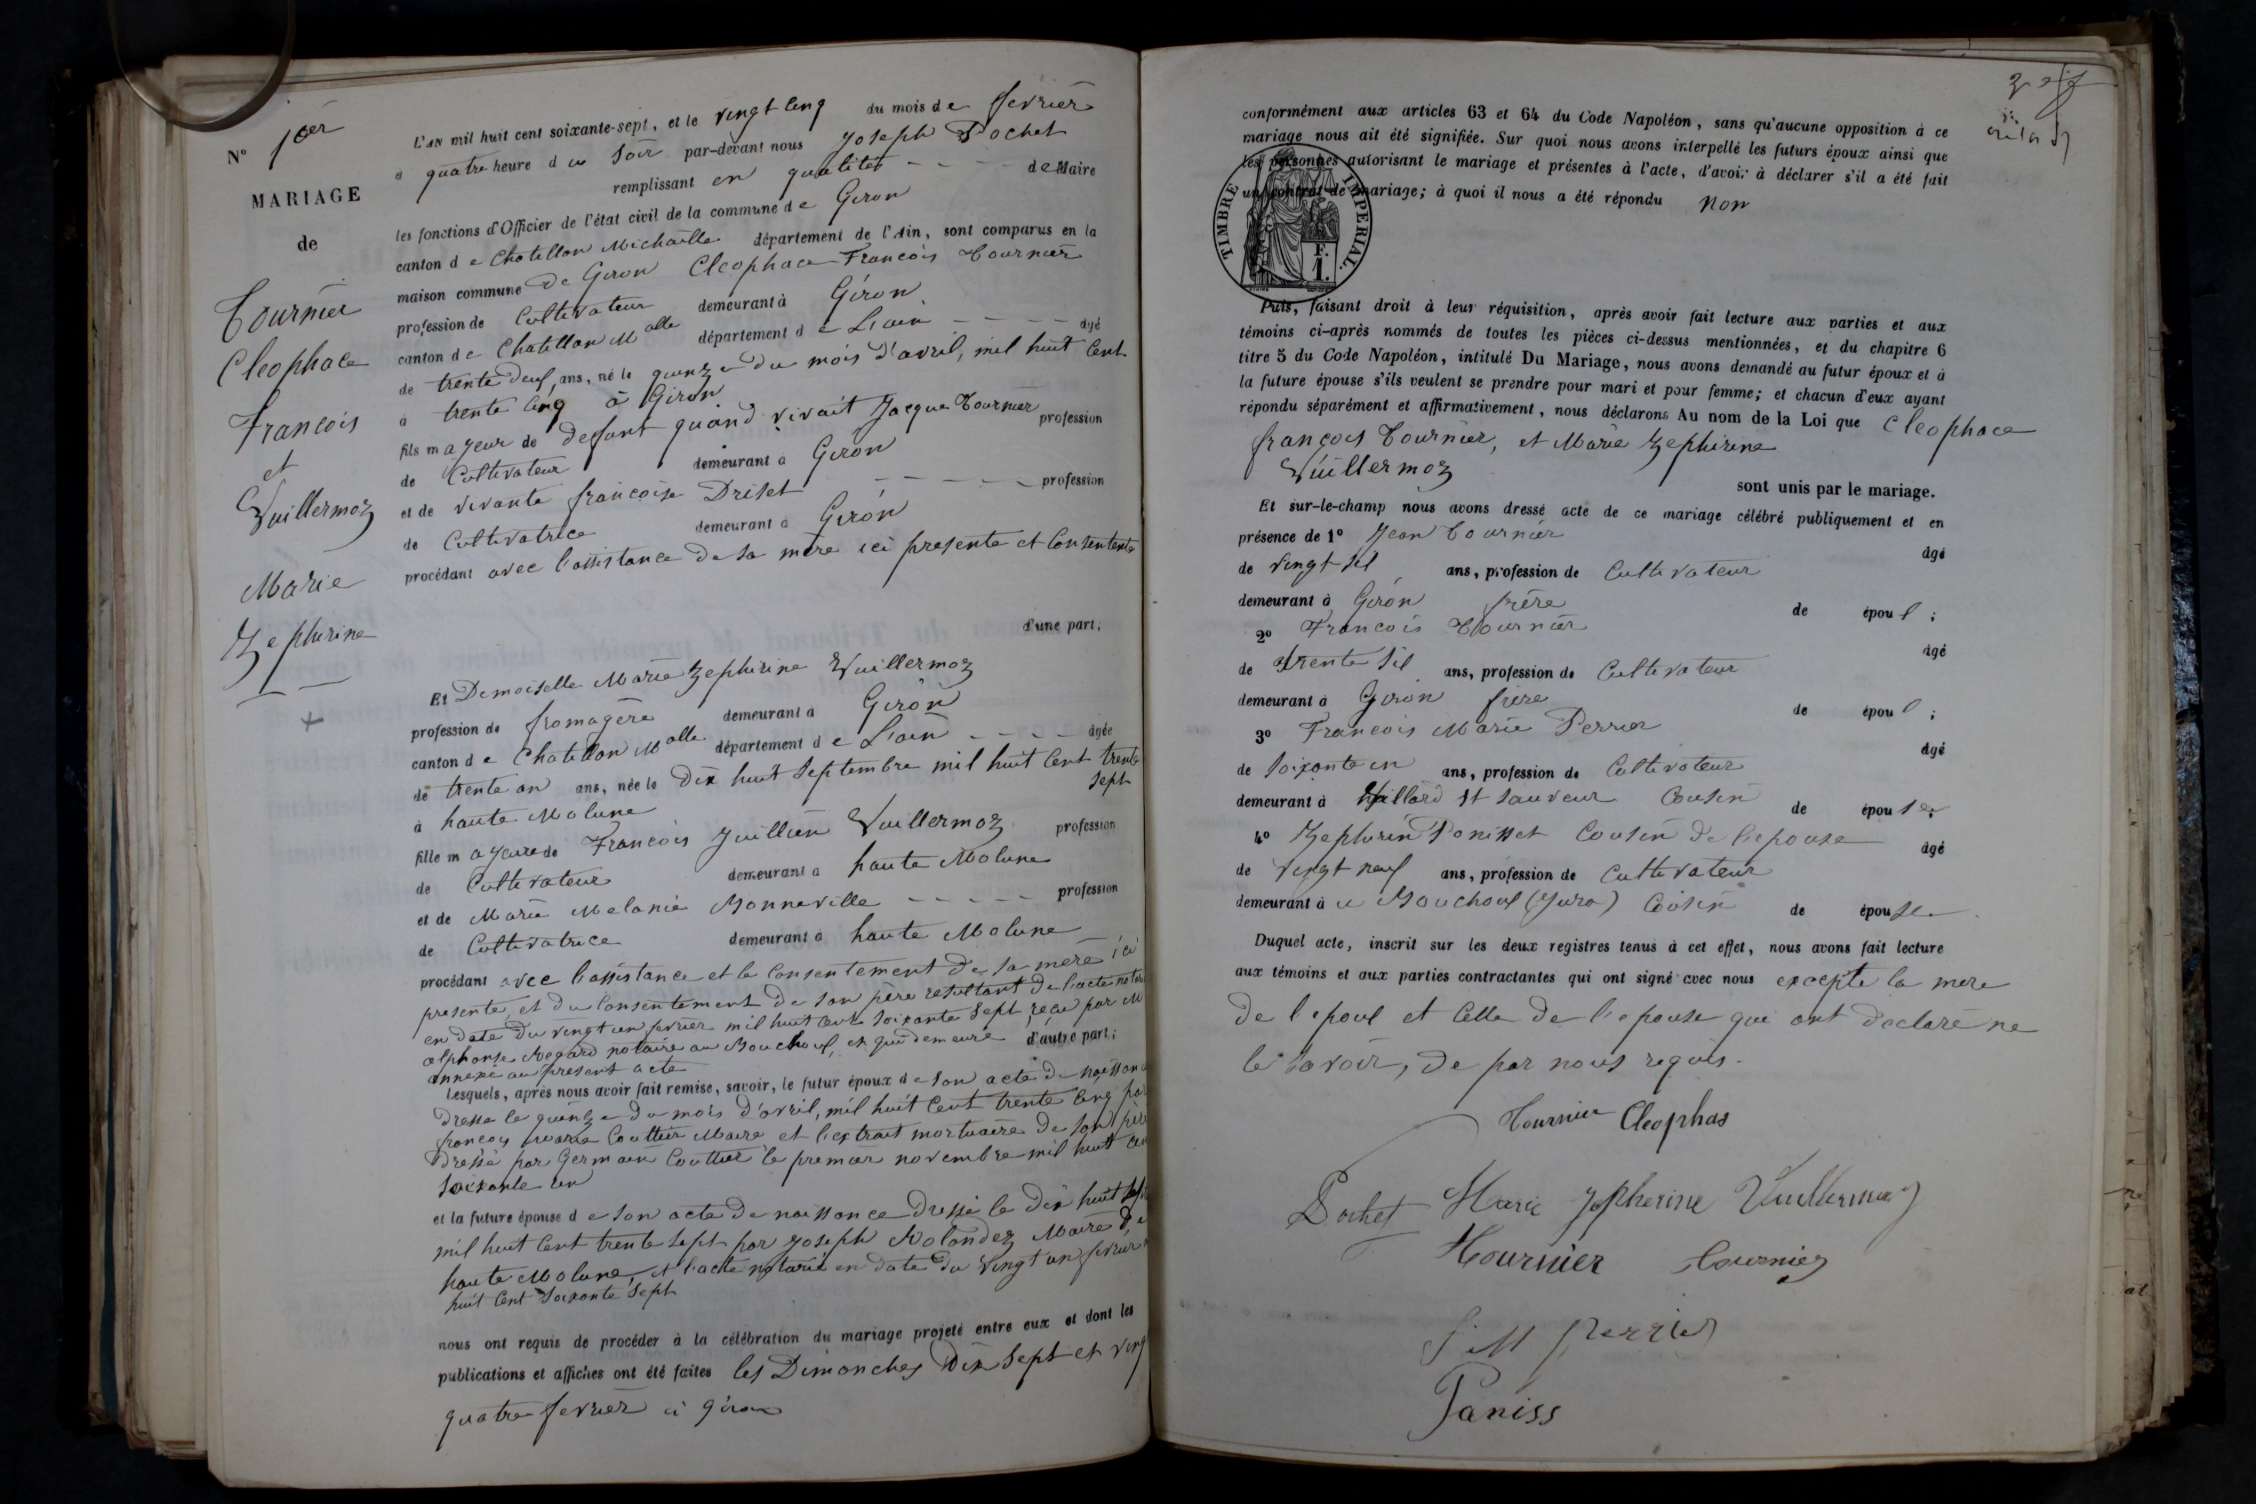 N° 1er
MARIAGE
de
Tournier
Cleophace
François
et
Vuillermoz
Marie
Zephirine
L'AN mil huit cent soixante-sept, et le vingt cinq du mois de fevrier
à quatre heure du soir par-devant nous Joseph Pochet
remplissant en qualitet de Maire
les fonctions d'Officier de l'état civil de la commune de Giron
canton de Chatillon Michaille département de l'Ain, sont comparus en la
maison commune de Giron Cleophace François Tournier
profession de Cultivateur demeurant à Giron
canton de Chatillon Malle département de L'ain âgé
de trente deux ans, né le quinze du mois d'avril, mil huit Cent
à trente cinq à Giron
fils mayeur de defunt quand vivait Jacque Tournier profession
de Cultivateur demeurant à Giron
et de vivante françoise Driset profession
de Cultivatrice demeurant à Giron
procédant avec l'assistance de sa mère ici presente et Consentente
d'une part;
Et Demoiselle Marie Zephirine Vuillermoz
profession de fromagère demeurant à Giron
canton de Chatillon Malle département de L'ain âgée
de trente an ans, née le Dix huit Septembre mil huit Cent trente
sept
à haute Molune
fille mayeure de François Juillien Vuillermoz profession
de Cultivateur demeurant à haute Molune
et de Marie Melanie Bonneville profession
de Cultivatrice demeurant à haute Molune
procédant avec l'assistance et le Consentement de sa mère ici
presente, et du Consentement de son père resultant de l'acte
en date du vingt un fevrier mil huit Cent soixante sept reçu par M
alphonse Regard notaire au Bouchoux, et qui demeure d'autre part;
annexé au present acte
Lesquels, après nous avoir fait remise, savoir, le futur époux de son acte de
Dressé le quinze du mois d'avril, mil huit Cent trente cinq
françois marie Coutier Maire et l'extrait mortuaire de son père
Dressé par Germain Coutier le premier novembre mil huit
soixante un
et la future épouse de son acte de naissance Dressé le Dix huit
mil huit Cent trente sept par Joseph Rolandez Maire de
haute Molune, et l'acte notarié en date du vingt un fevrier
huit Cent soixante sept
nous ont requis de procéder à la célébration du mariage projeté entre eux et dont les
publications et affiches ont été faites les Dimanches Dix Sept et ving
quatre fevrier à giron
conformément aux articles 63 et 64 du Code Napoléon, sans qu'aucune opposition à ce
mariage nous ait été signifiée. Sur quoi nous avons interpellé les futurs époux ainsi que
les personnes autorisant le mariage et présentes à l'acte, d'avoir à déclarer s'il a été fait
un contrat de mariage; à quoi il nous a été répondu Non
TIMBRE IMPERIAL.
F.
1.
Puis, faisant droit à leur réquisition, après avoir fait lecture aux parties et aux
témoins ci-après nommés de toutes les pièces ci-dessus mentionnées, et du chapitre 6
titre 5 du Code Napoléon, intitulé Du Mariage, nous avons demandé au futur époux et à
la future épouse s'ils veulent se prendre pour mari et pour femme; et chacun d'eux ayant
répondu séparément et affirmativement, nous déclarons Au nom de la Loi que Cleophace
françois Tournier, et Marie Zephirine
Vuillermoz
sont unis par le mariage.
Et sur-le-champ nous avons dressé acte de ce mariage célébré publiquement et en
présence de 1° Jean Tournier âgé
de vingt sil ans, profession de Cultivateur
demeurant à Giron frère de époul;
2° François Tournier âgé
de trente sil ans, profession de Cultivateur
demeurant à Giron frère de époul;
3° François Marie Perrier âgé
de soixante un ans, profession de Cultivateur
demeurant à Villard St Sauveur Cousin de épouse
4° Zephirin Panisset Cousin de l'epouse âgé
de vingt neuf ans, profession de Cultivateur
demeurant à u Bouchoul (Jura) Cousin de épouse
Duquel acte, inscrit sur les deux registres tenus à cet effet, nous avons fait lecture
aux témoins et aux parties contractantes qui ont signé avec nous excepté la mere
de l'epoul et Celle de l'epouse qui ont declaré ne
le savoir, de par nous requis.
Tournier Cleophas
Pochet Marie Zepherine Vuillermoz
Tournier Tournier
f M Perrier
Paniss